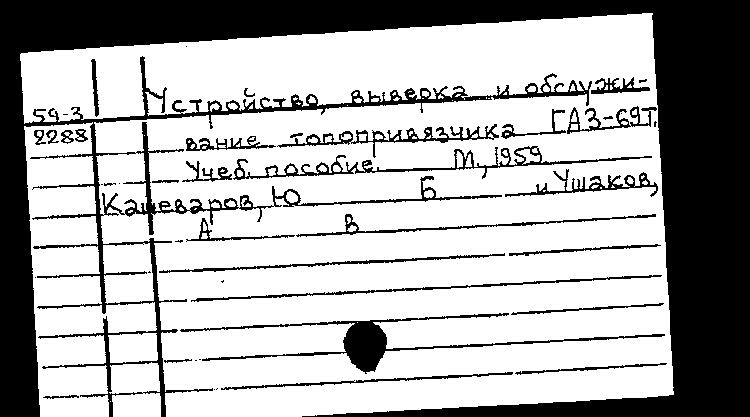 59-3
2288
Устройство, выверка и обслужи-
вание топопривязчика ГАЗ-69Т.
Учеб. пособие. М., 1959.
Кашеваров, Ю Б и Ушаков,
А В